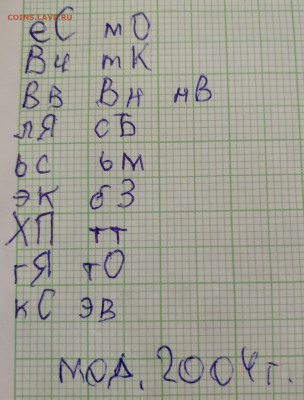 COINS.LAV.RU
еС мО
Вч тК
ВВ Вн нВ
лЯ сБ
ьс ьм
эк бЗ
ХП тт
гЯ тО
кС эв
мод. 2004 г.